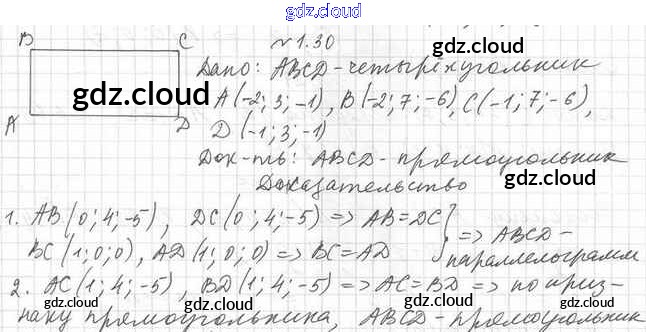 gdz.cloud
B C № 1.30
gdz.cloud
Дано: ABCD - четырёхугольник
gdz.cloud
A(-2; 3; -1), B(-2; 7; -6), C(-1; 7; -6),
gdz.cloud
A D D(-1; 3; -1)
Док-ть: ABCD - прямоугольник
Доказательство
gdz.cloud
1. AB(0; 4; -5), DC(0; 4; -5) => AB = DC
BC(1; 0; 0), AD(1; 0; 0) => BC = AD } => ABCD -
параллелограмм
gdz.cloud
2. AC(1; 4; -5), BD(1; 4; -5) => AC = BD => по приз-
gdz.cloud
gdz.cloud
наку прямоугольника, ABCD - прямоугольник